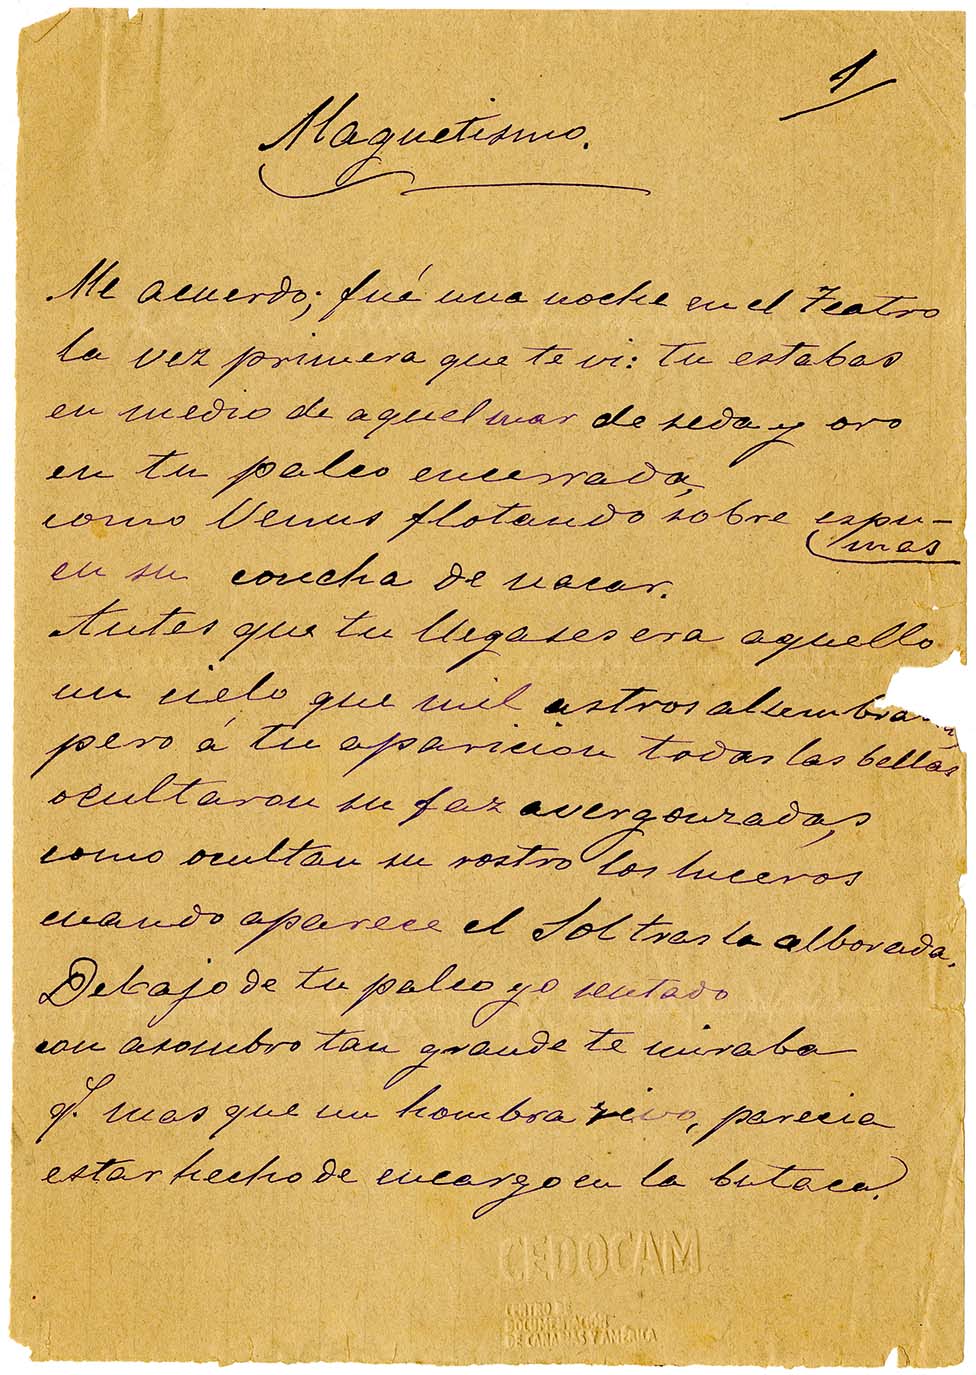 1
Magnetismo.
Me acuerdo; fué una noche en el Teatro
la vez primera que te vi: tu estabas
en medio de aquel mar de seda y oro
en tu palco encerrada,
como Venus flotando sobre espu-
mas
en su concha de nacar.
Antes que tu llegases era aquello
un cielo que mil astros alumbraban,
pero á tu aparicion todas las bellas
ocultaron su faz avergonzadas,
como ocultan su rostro los luceros
cuando aparece el Sol tras la alborada.
Debajo de tu palco yo sentado
con asombro tan grande te miraba
q. mas que un hombre vivo, parecia
estar hecho de encargo en la butaca.
CEDOCAM
CENTRO DE
DOCUMENTACIÓN
DE CANARIAS Y AMÉRICA